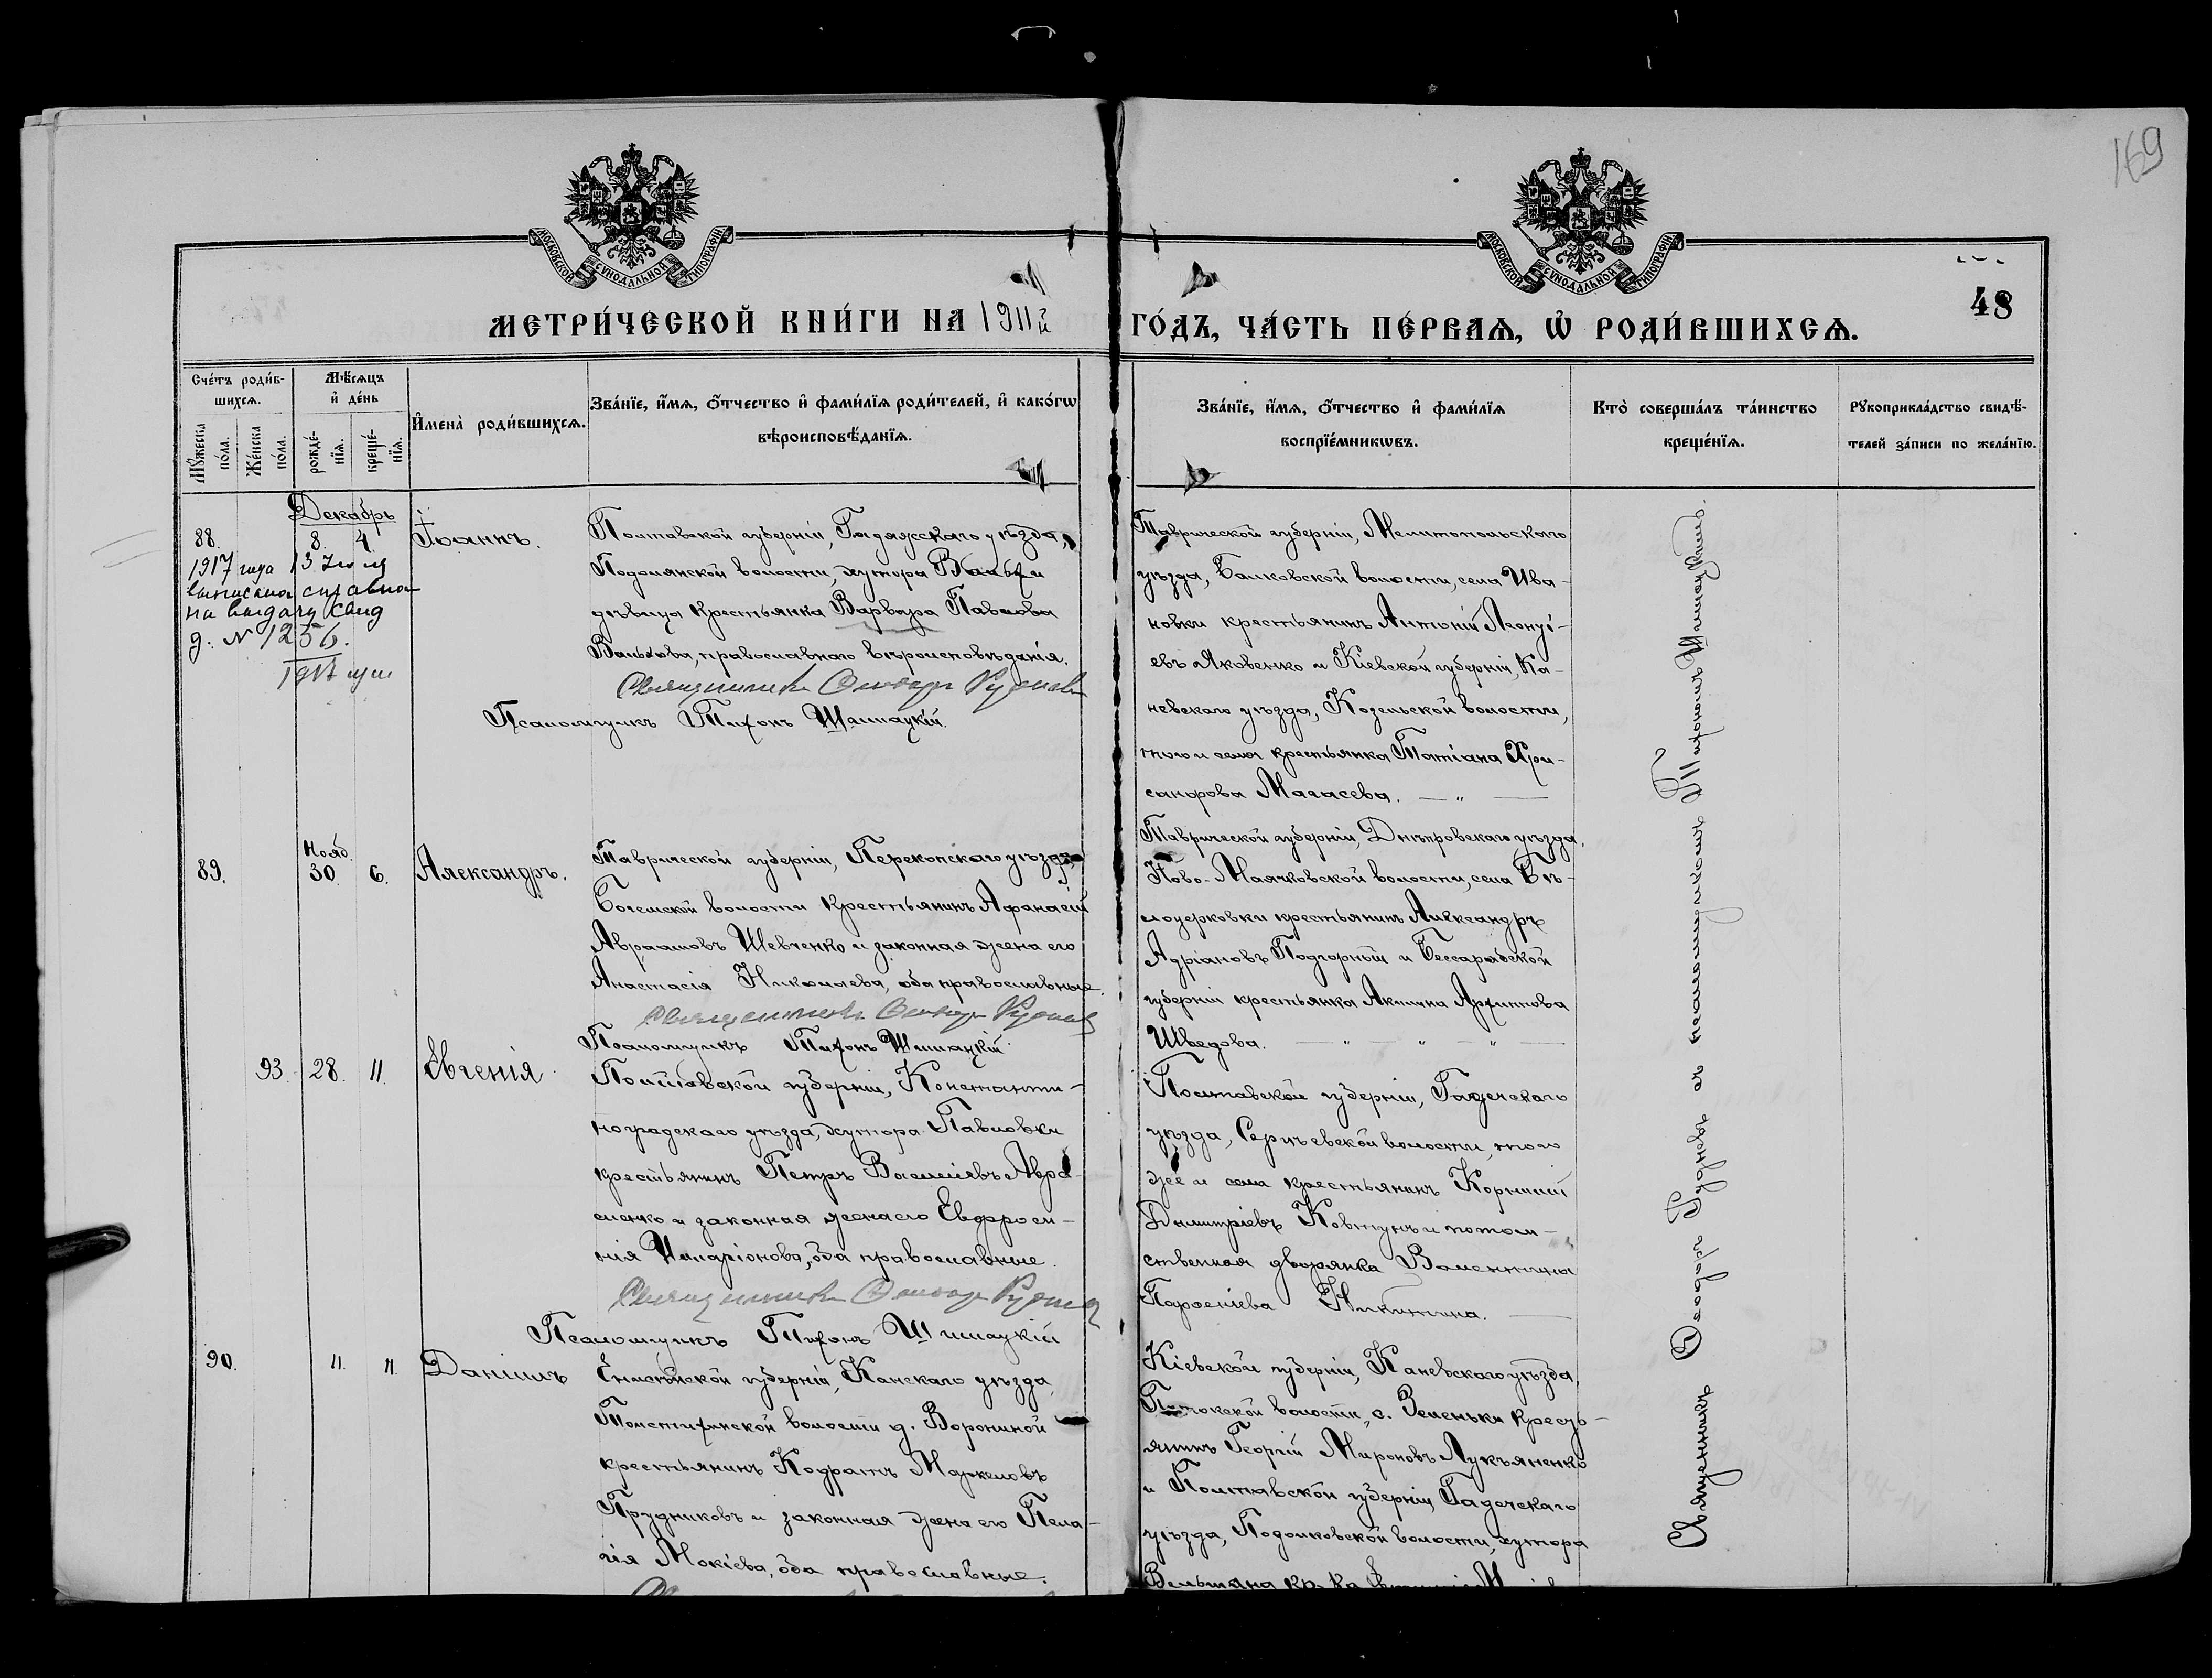 169
МОСКОВСКОЙ СѴНОДАЛЬНОЙ ТИПОГРАФІИ
МОСКОВСКОЙ СѴНОДАЛЬНОЙ ТИПОГРАФІИ
48
МЕТРИ́ЧЕСКОЙ КНИ́ГИ НА 1911й ГО́ДЪ, ЧА́СТЬ ПЕ́РВАѦ, Ѡ҆ РОДИ́ВШИХСѦ.
Сче́тъ роди́в-
шихсѧ.
Мꙋ́жеска по́ла.
Же́нска по́ла.
Мѣ́сѧцъ
и҆ де́нь
рожде́-
нїѧ.
креще́-
нїѧ.
И҆мена̀ роди́вшихсѧ.
Зва́нїе, и҆́мѧ, ѻ҆́тчество и҆ фами́лїѧ роди́телей, и҆ како́гѡ
вѣроисповѣ́данїѧ.
Зва́нїе, и҆́мѧ, ѻ҆́тчество и҆ фами́лїѧ
воспрїе́мникѡвъ.
Кто̀ соверша́лъ та́инство
креще́нїѧ.
Рꙋкоприкла́дство свидѣ́-
телей за́писи по жела́нїю.
Декабрь
88. 8. 4. Іоаннъ.
1917 года 13 Іюля
выписана справка
на выдачу свид
д. № 1256.
1917 года
Полтавской губерніи, Гадяцскаго уѣзда,
волости, хутора
дѣвица крестьянка Варвара Павлова
православнаго вѣроисповѣданія.
Священникъ Ѳеодоръ Рудневъ
Псаломщикъ Тихонъ Шишацкій.
Таврической губерніи, Мелитопольскаго
уѣзда, Балковской волости, села Ива-
новки крестьянинъ Антоній
евъ Яковенко и Кіевской губерніи, Ка-
невскаго уѣзда, Козельской волости,
того и села крестьянка Татіана Хри-
санфова Магасева.
Нояб.
89. 30. 6. Александръ.
Таврической губерніи, Перекопскаго уѣзда,
Богемской волости крестьянинъ Афанасій
Авраамовъ Шевченко и законная жена его
Анастасія Николаева, оба православные.
Священникъ Ѳеодоръ Рудневъ
Псаломщикъ Тихонъ Шишацкій
Таврической губерніи, Днѣпровскаго уѣзда,
Ново-Маячковской волости, села Бѣ-
лоцерковки крестьянинъ Александръ
Адріановъ Подгорный и Бессарабской
губерніи крестьянка Акилина Архипова
Шведова.
93. 28. 11. Евгенія.
Полтавской губерніи, Константи-
ноградскаго уѣзда, хутора Павловки
крестьянинъ Петръ Василіевъ Авра-
менко и законная жена его Евфроси-
нія Иларіонова, оба православные.
Священникъ Ѳеодоръ Рудневъ
Псаломщикъ Тихонъ Шишацкій
Полтавской губерніи, Гадячскаго
уѣзда, Сергѣевской волости, того
же и села крестьянинъ Корнилій
Димитріевъ Ковтунъ и потом-
ственная дворянка Валентина
Парѳеніева Никитина.
90. 11. 11. Даніилъ
Енисейской губерніи, Канскаго уѣзда,
Толстихинской волости д. Ворониной
крестьянинъ Кодратъ Маркеловъ
Прудниковъ и законная жена его Пела-
гія Мокіева, оба православные.
Кіевской губерніи, Каневскаго уѣзда,
Потокской волости, с. Зеленьки кресть-
янинъ Георгій Мироновъ Лукьяненко
и Полтавской губерніи, Гадячскаго
уѣзда, волости, хутора
Вельмана кр-ка
Священникъ Ѳеодоръ Рудневъ съ псаломщикомъ Тихономъ Шишацкимъ.